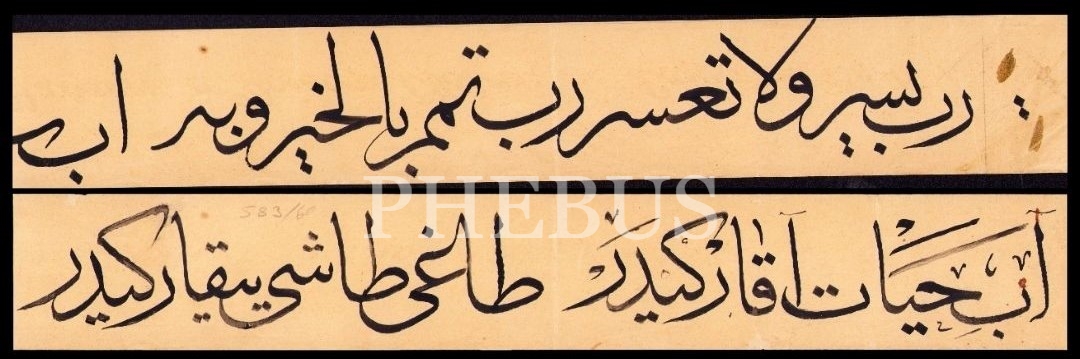 رب يسير ولا تعسر رب تمم بالخير وبه ا ب
PHEBUS
583/6
آب حيات آقار كيدر طاغى طاشى ييقار كيدر